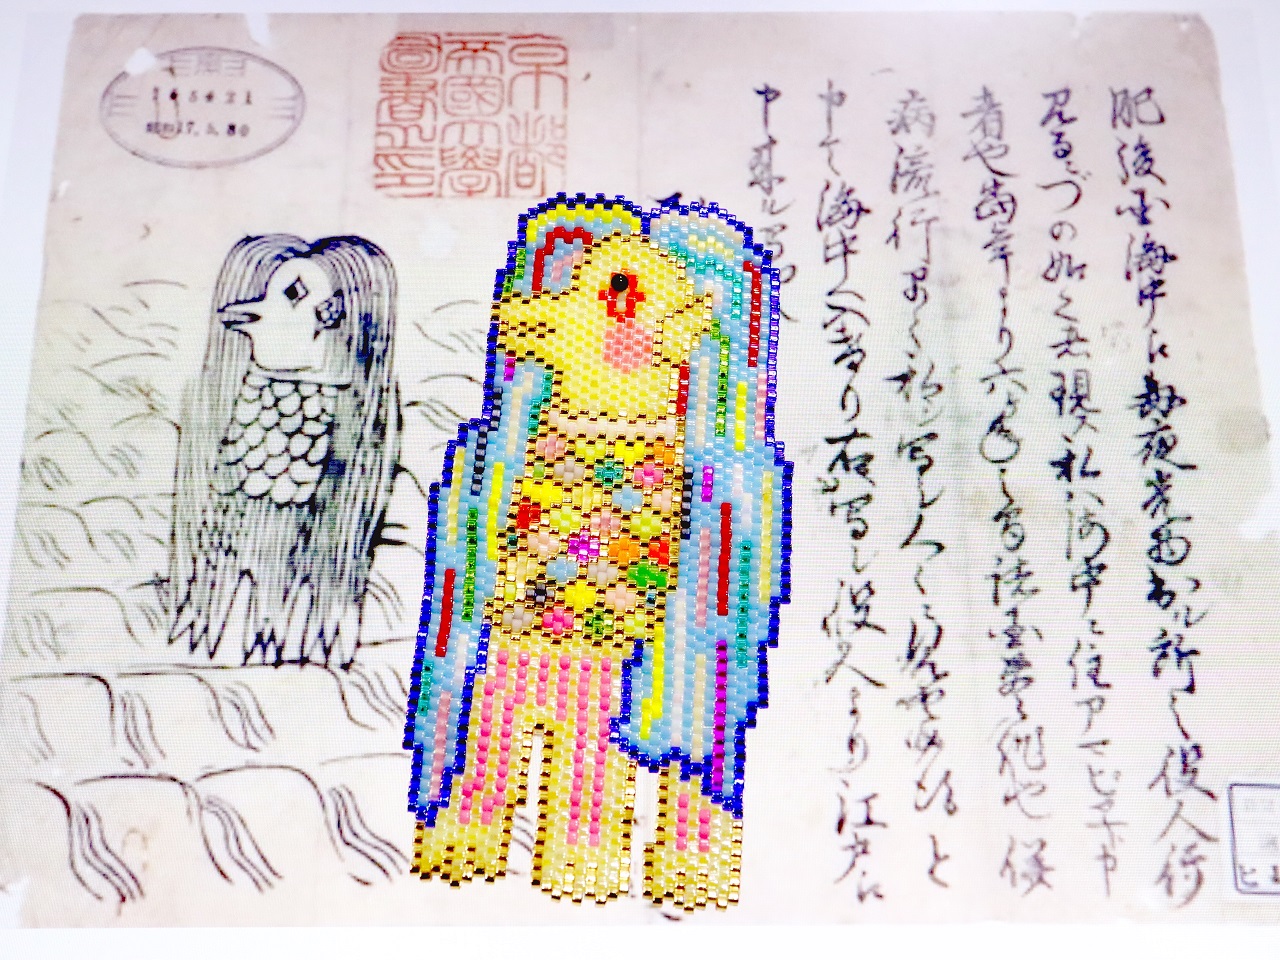 京都
帝國大學
圖書之印
肥後国海中え毎夜光物出ル所之役人行
見るニづの如く者現ス私ハ海中ニ住アマビヱト申
者也当年より六ヶ年之間諸国豊作也併
病流行早々私写シ人々ニ見せ候得と
申て海中へ入けり右写シ役人より江戸え
申来ル写也